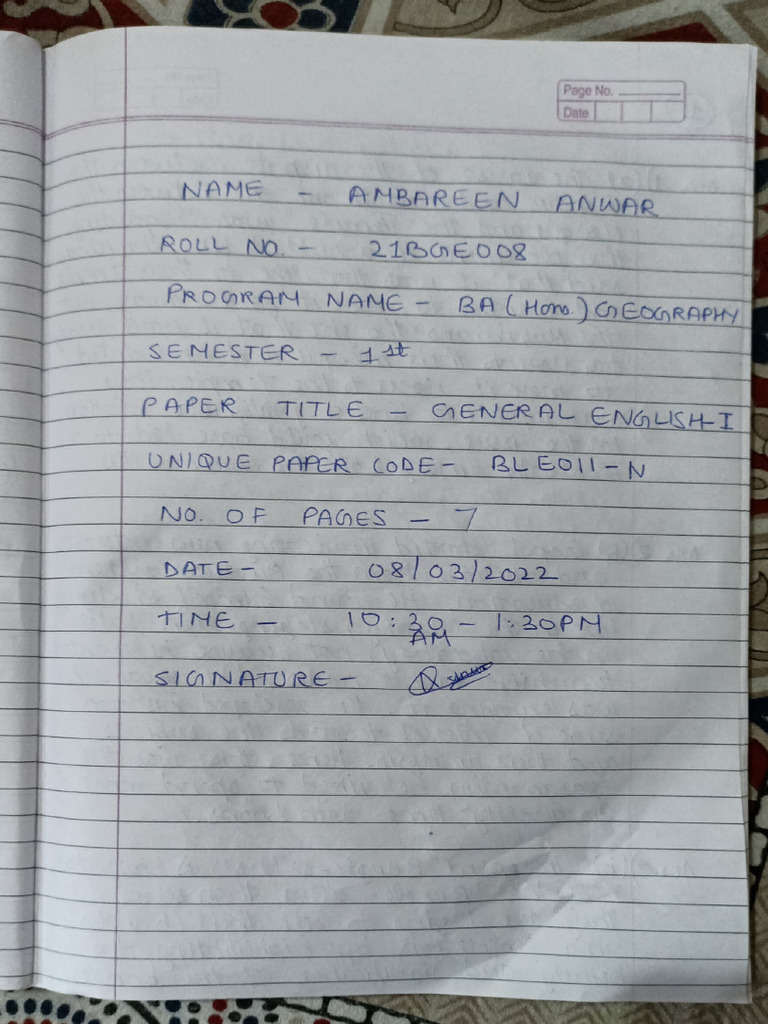 Page No.
Date
NAME - AMBAREEN ANWAR
ROLL NO. - 21BGE008
PROGRAM NAME - BA (Hons.) GEOGRAPHY
SEMESTER - 1st
PAPER TITLE - GENERAL ENGLISH-I
UNIQUE PAPER CODE - BLE011-N
NO. OF PAGES - 7
DATE - 08/03/2022
TIME - 10:30 - 1:30PM
AM
SIGNATURE -